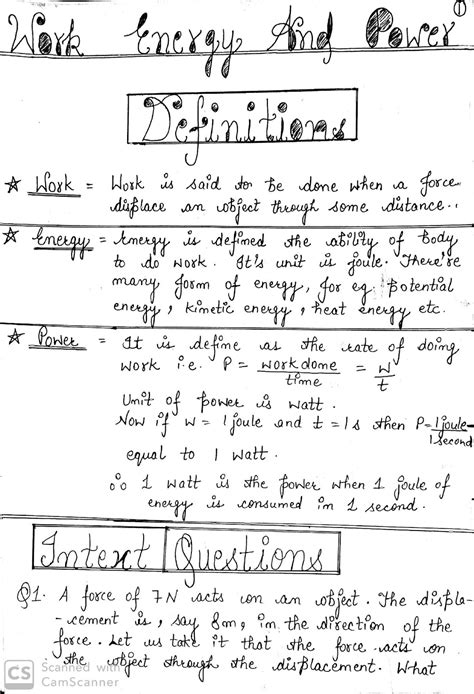 Work Energy And Power
1
Definitions
☆ Work = Work is said to be done when a force
displace an object through some distance..
☆ Energy = Energy is defined the ability of body
to do work. It's unit is joule. There're
many form of energy, for eg. potential
energy, kinetic energy, heat energy etc.
☆ Power = It is define as the rate of doing
work i.e. P = work dome/time = W/t
Unit of power is watt.
Now if W = 1 joule and t = 1s then P = 1 joule/1 second
equal to 1 watt.
∴ 1 watt is the power when 1 joule of
energy is consumed in 1 second.
Intext Questions
Q1. A force of 7N acts on an object. The displa-
-cement is, say 8m, in the direction of the
force. Let us take it that the force acts on
the object through the displacement. What
CS Scanned with
CamScanner